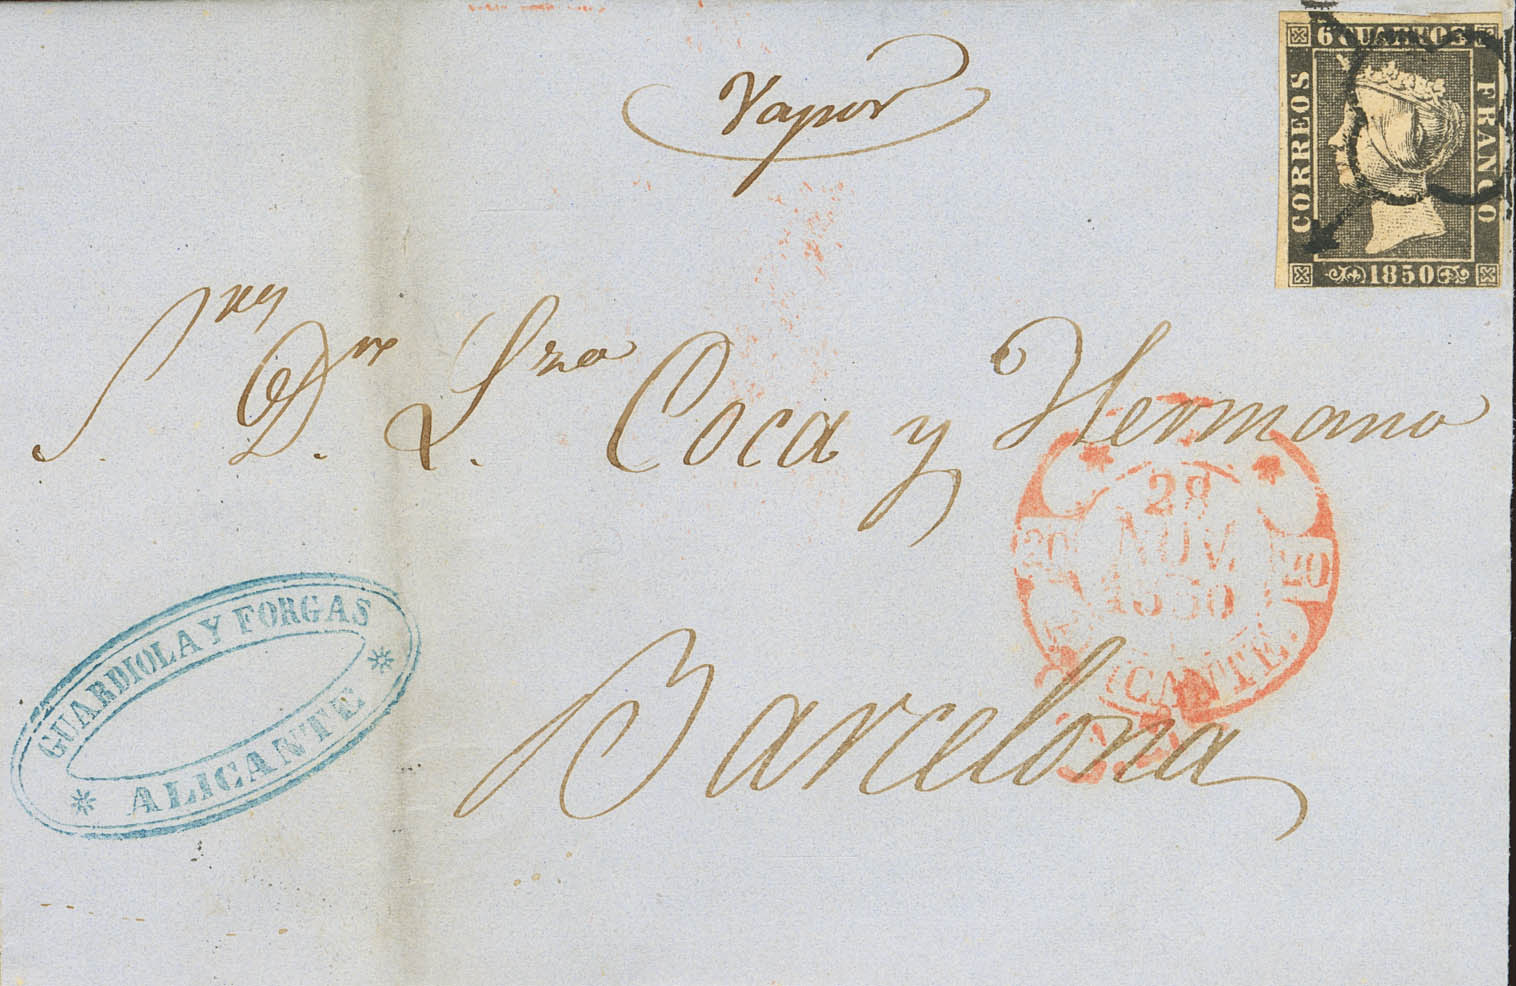 Vapor
6 CUARTOS
CORREOS
FRANCO
1850
S.res D.n L.zo Coca y Hermano
28
NOV.
1850
20
20
ALICANTE.
Barcelona
GUARDIOLA Y FORGAS
ALICANTE